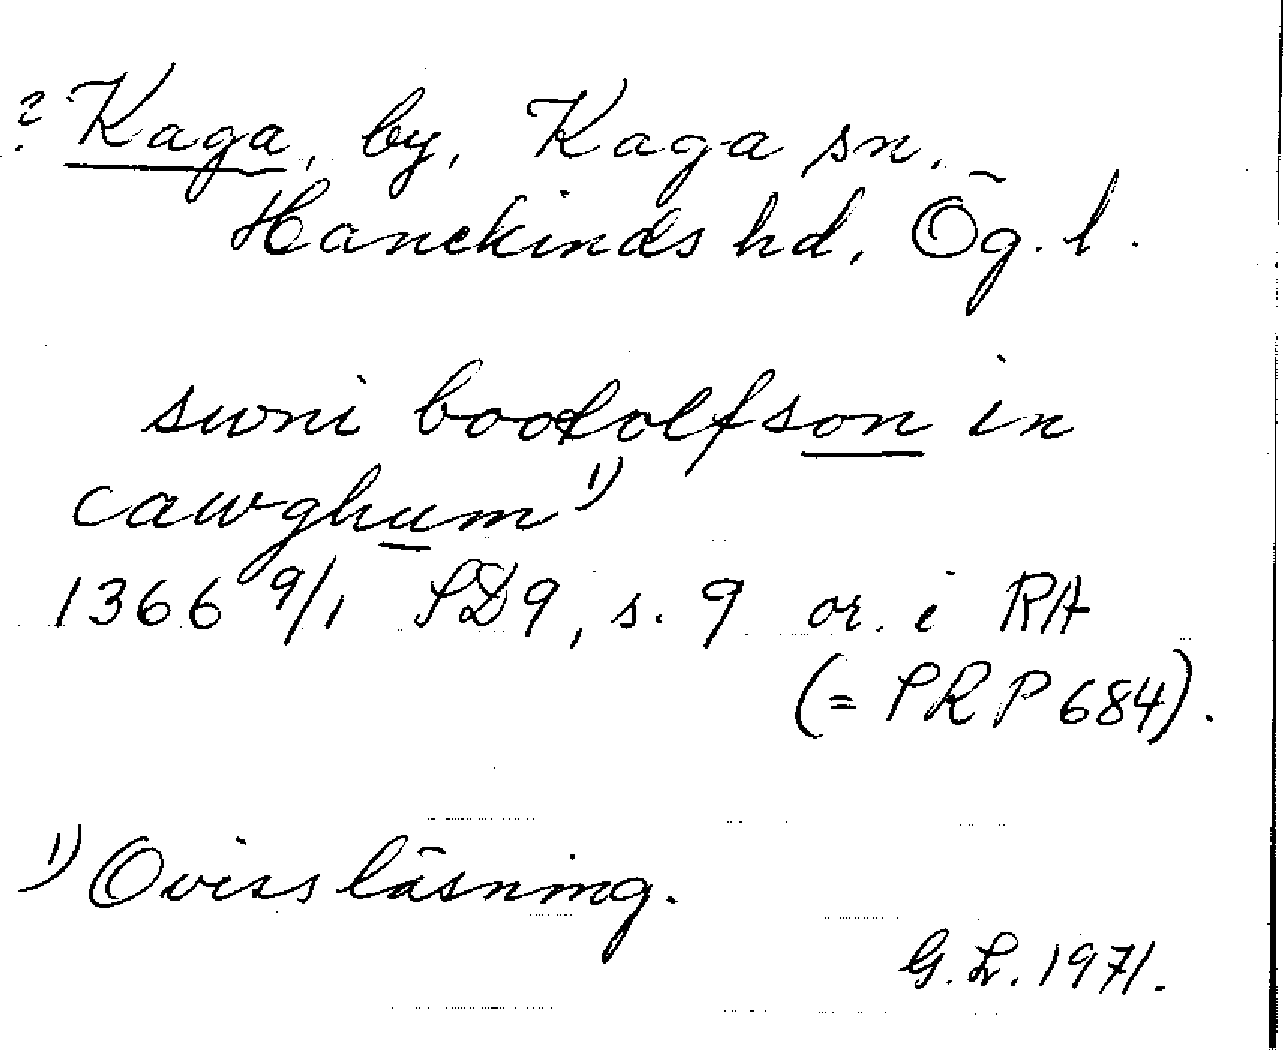 ? Kaga, by, Kaga sn.
Hanekinds hd, Ög. l.
suni bootolfson in
cawghum 1)
1366 9/1 SD9, s. 9 or. i RA
(= PRP 684).
1) Oviss läsning.
G. L. 1971.